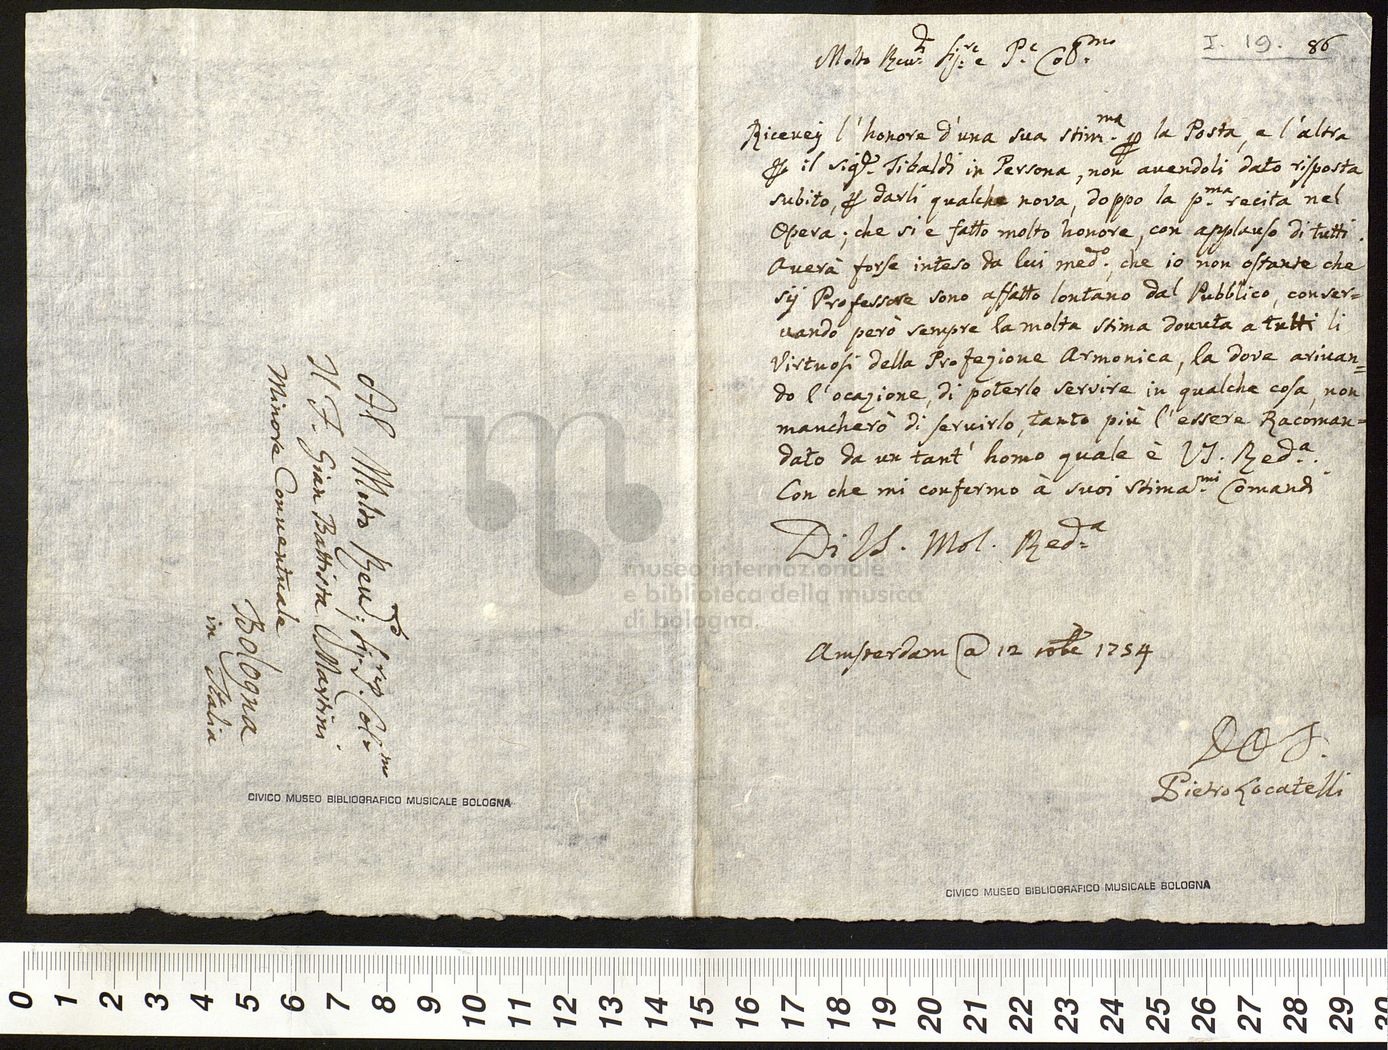 I. 19. 86
Molto Reu.do Sig.re e P.e Col.mo
Riceuej l'honore d'una sua stim.ma p la Posta, e l'altra
p il sig.r Tibaldi in Persona, non auendoli dato risposta
subito, p darli qualche nova, doppo la p.ma recita nel
Opera; che si e fatto molto honore, con applauso di tutti.
Auerà forse inteso da lui med.o, che io non ostante che
sij Professore sono affatto lontano dal Pubblico, conser=
uando però sempre la molta stima douuta a tutti li
Virtuosi della Profezione Armonica, la dove ariuan=
do l'ocazione, di poterlo servire in qualche cosa, non
mancherò di seruirlo, tanto più l'essere Racoman=
dato da un tant' homo quale è VS. Red.a.
Con che mi confermo à suoi stima.mi Comandi
Di VS. Mol. Red.a
Amsterdam a 12 10bre 1754
D O S.
Pietro Locatelli
CIVICO MUSEO BIBLIOGRAFICO MUSICALE BOLOGNA
Al Molto Reu.do Sig.re Col.mo
Il F. Gian Battista Martini
Minore Conuentuale
Bologna
in Italia
CIVICO MUSEO BIBLIOGRAFICO MUSICALE BOLOGNA
museo internazionale
e biblioteca della musica
di bologna
0 1 2 3 4 5 6 7 8 9 10 11 12 13 14 15 16 17 18 19 20 21 22 23 24 25 26 27 28 29 30